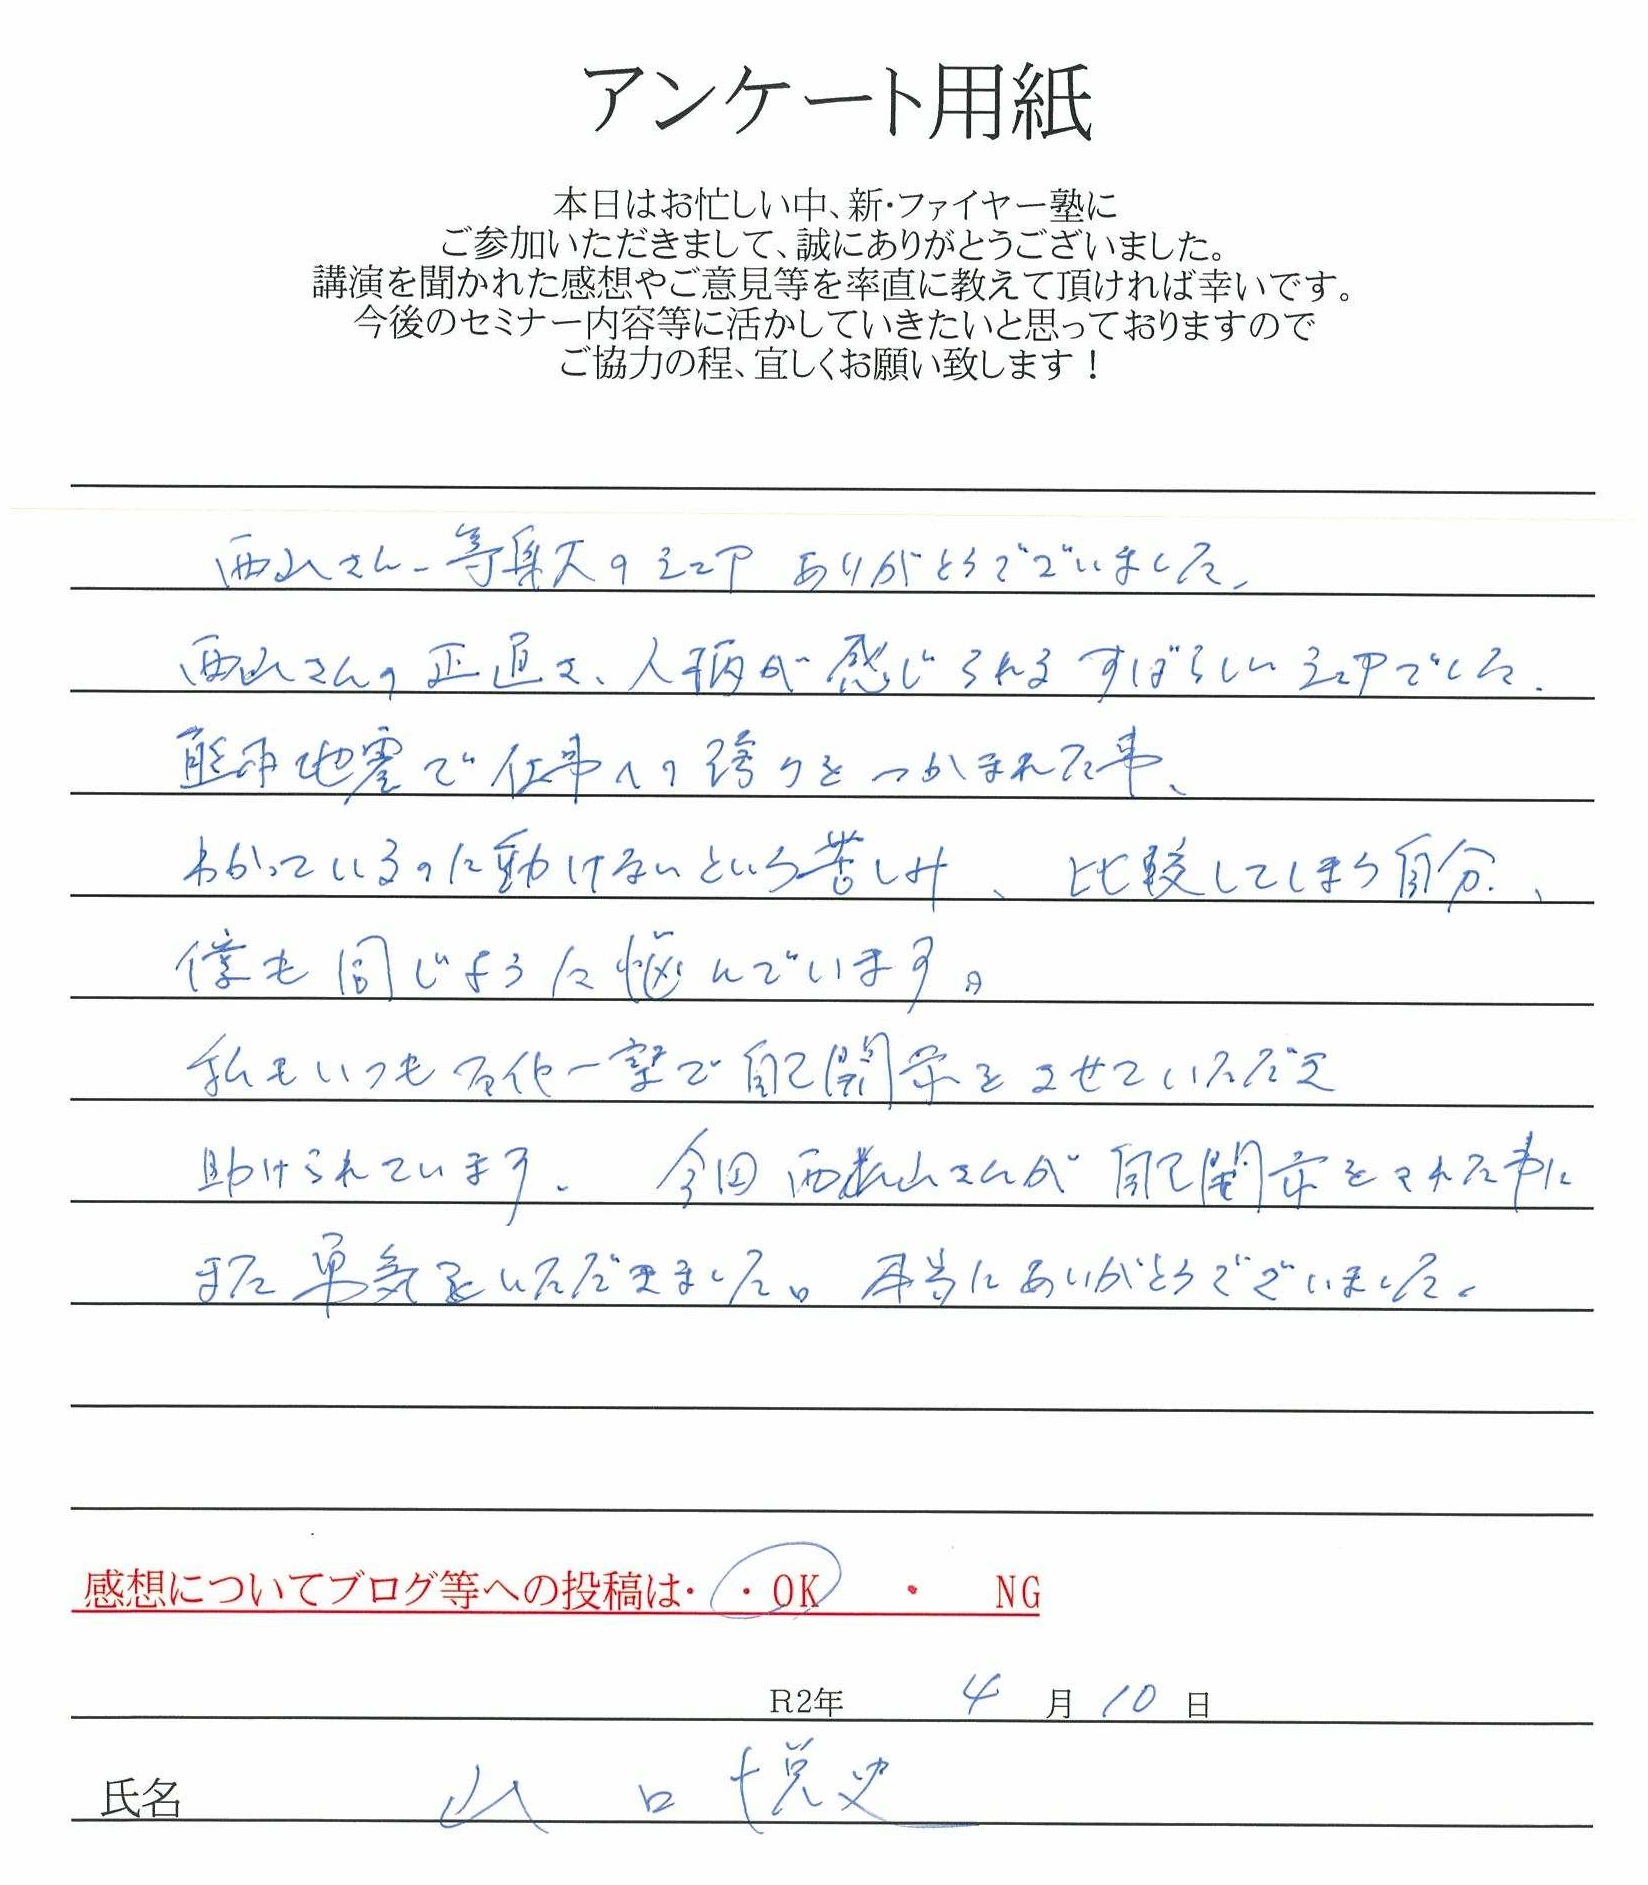 アンケート用紙
本日はお忙しい中、新・ファイヤー塾に
ご参加いただきまして、誠にありがとうございました。
講演を聞かれた感想やご意見等を率直に教えて頂ければ幸いです。
今後のセミナー内容等に活かしていきたいと思っておりますので
ご協力の程、宜しくお願い致します！
西山さん シェア ありがとうございました。
西山さんの正直さ、人柄が感じられるすばらしいシェアでした。
熊本地震で仕事への誇りをつかまれた事、
わかっているのに動けないという苦しみ、比較してしまう自分、
僕も同じように悩んでいます。
私もいつも 一撃で自己開示をさせていただき
助けられています。 今回西山さんが自己開示をされた事に
また勇気をいただきました。本当にありがとうございました。
感想についてブログ等への投稿は・ ・OK ・ NG
R2年 4 月 10 日
氏名 山口悦史